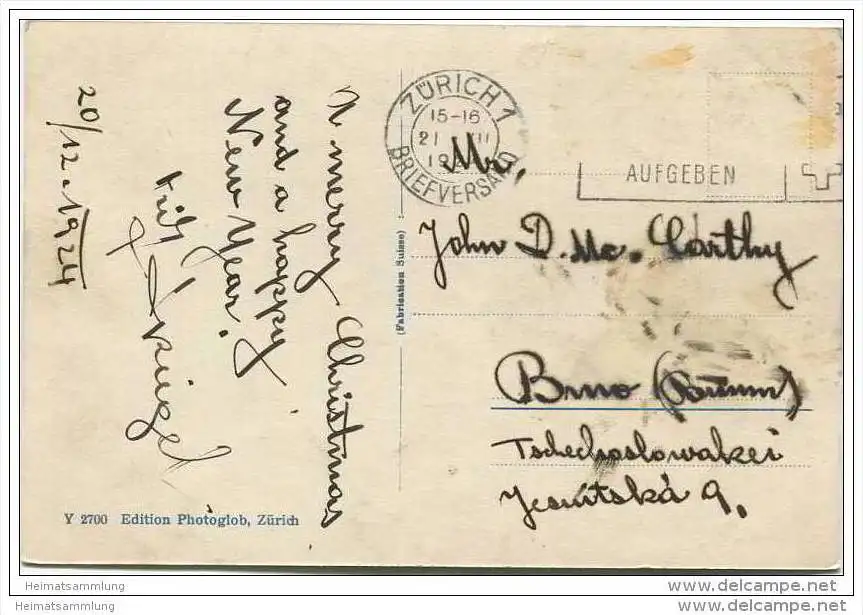 20/12.1924
A merry Christmas
and a happy
New Year!
Fritz
ZÜRICH 1
15-16
21
BRIEFVERSAND
AUFGEBEN
Mr.
John D. Mc. Carthy
Brno (Brünn)
Tschechoslowakei
Jesuitská 9.
(Fabrication Suisse)
Y 2700 Edition Photoglob, Zürich
Heimatsammlung
Heimatsammlung
www.delcampe.net
www.delcampe.net